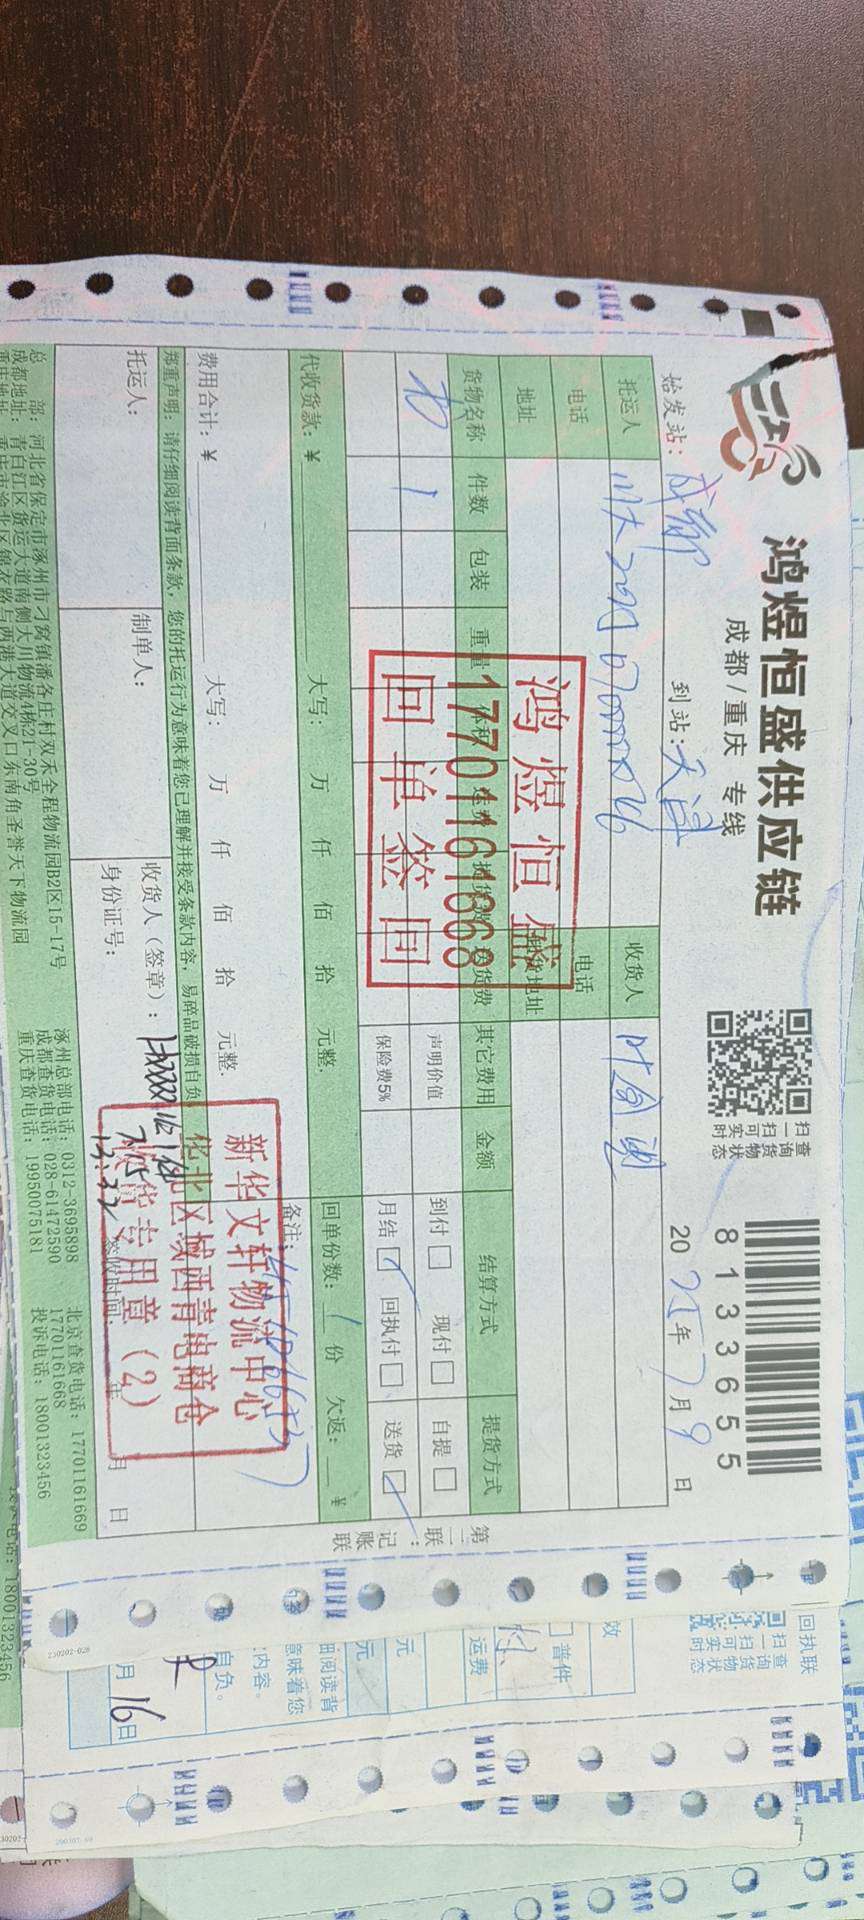 鸿煜恒盛供应链
成都/重庆 专线
扫一扫查询货物可实时状态
8133655
始发站：成都 到站：天津 2025年7月9日
托运人 收货人
电话 电话
地址 收货地址
货物名称 件数 包装 重量 体积 运费 提货费 送货费 其它费用 金额 结算方式 提货方式
书 1 声明价值 到付 现付 自提
保险费5% 月结 回执付 送货
代收货款：¥ 大写： 万 仟 佰 拾 元整. 回单份数：1份 欠返：¥
费用合计：¥ 大写： 万 仟 佰 拾 元整. 备注：
郑重声明：请仔细阅读背面条款，您的托运行为意味着您已理解并接受条款内容，易碎品破损自负
托运人： 制单人： 收货人（签章）：
身份证号： 签收时间： 年 月 日
总部：河北省保定市涿州市刁窝镇潘各庄村双禾全程物流园B2区15-17号 涿州总部电话：0312-3695898 北京查货电话：17701161669
成都地址：青白江区货运大道南侧大川物流4栋21-30号 成都查货电话：028-61472590 17701161668
重庆地址：重庆市渝北区锦衣路与西港大道交叉口东南角圣誉天下物流园 重庆查货电话：19950075181 投诉电话：18001323456
第二联：记账联
鸿煜恒盛
17701161668
回单签回
新华文轩物流中心
华北区域西青电商仓
收货专用章（2）
7.15
13:32
回执联
扫一扫查询货物可实时状态
普件
运费
元
元
细阅读背
意味着您
内容。
自负。
月16日
230202-028
18001323456